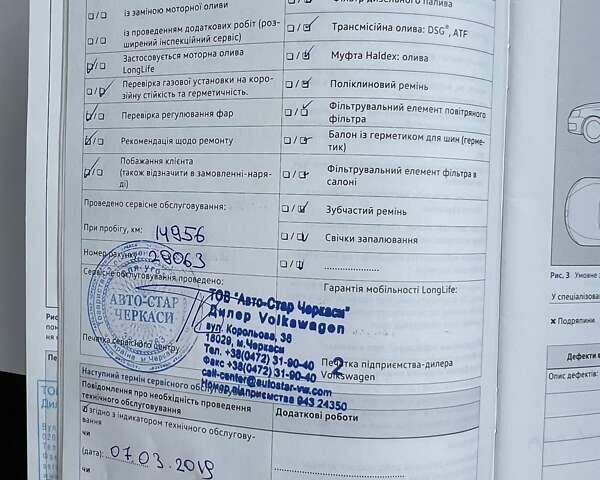 із заміною моторної оливи
із проведенням додаткових робіт (роз-
ширений інспекційний сервіс)
Застосовується моторна олива
LongLife
Перевірка газової установки на коро-
зійну стійкість та герметичність.
Перевірка регулювання фар
Рекомендація щодо ремонту
Побажання клієнта
(також відзначити в замовленні-наря-
ді)
Проведено сервісне обслуговування:
При пробігу, км: 14956
Номер рахунку 29063
Сервісне обслуговування проведено:
АВТО-СТАР
ЧЕРКАСИ
Печатка сервісного центру
Фільтр дизельного палива
Трансмісійна олива: DSG®, ATF
Муфта Haldex: олива
Поліклиновий ремінь
Фільтрувальний елемент повітряного
фільтра
Балон із герметиком для шин (герме-
тик)
Фільтрувальний елемент фільтра в
салоні
Зубчастий ремінь
Свічки запалювання
Гарантія мобільності LongLife:
ТОВ "Авто-Стар Черкаси"
Дилер Volkswagen
вул. Корольова, 36
18029, м.Черкаси
Тел. +38(0472) 31-90-40
Факс +38(0472) 31-90-40
call-center@autostar-vw.com
Номер підприємства 943 24350
2
Печатка підприємства-дилера
Volkswagen
Наступний термін сервісного обслуговування
Повідомлення про необхідність проведення
технічного обслуговування
Додаткові роботи
згідно з індикатором технічного обслугову-
вання
чи
(дата): 07.03.2019
чи
Рис. 3 Умовне
У спеціалізован
✖ Подряпини
Дефекти
Опис дефектів: